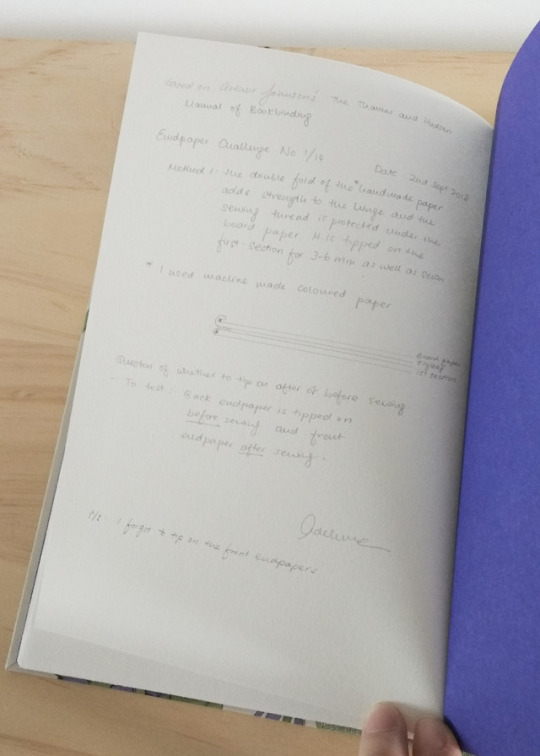 Based on Arthur Johnson's The Thames and Hudson
Manual of Bookbinding
Endpaper Challenge No 1/18
Date 2nd Sept 2018
Method 1: The double fold of the *handmade paper
adds strength to the hinge and the
sewing thread is protected under the
board paper. It is tipped on the
first section for 3-6 mm as well as sewn
* I used machine made coloured paper
Board paper
Flyleaf
1st section
Question of whether to tip on after of before sewing
- To test: Back endpaper is tipped on
before sewing and front
endpaper after sewing.
P/S: I forgot to tip on the front endpapers